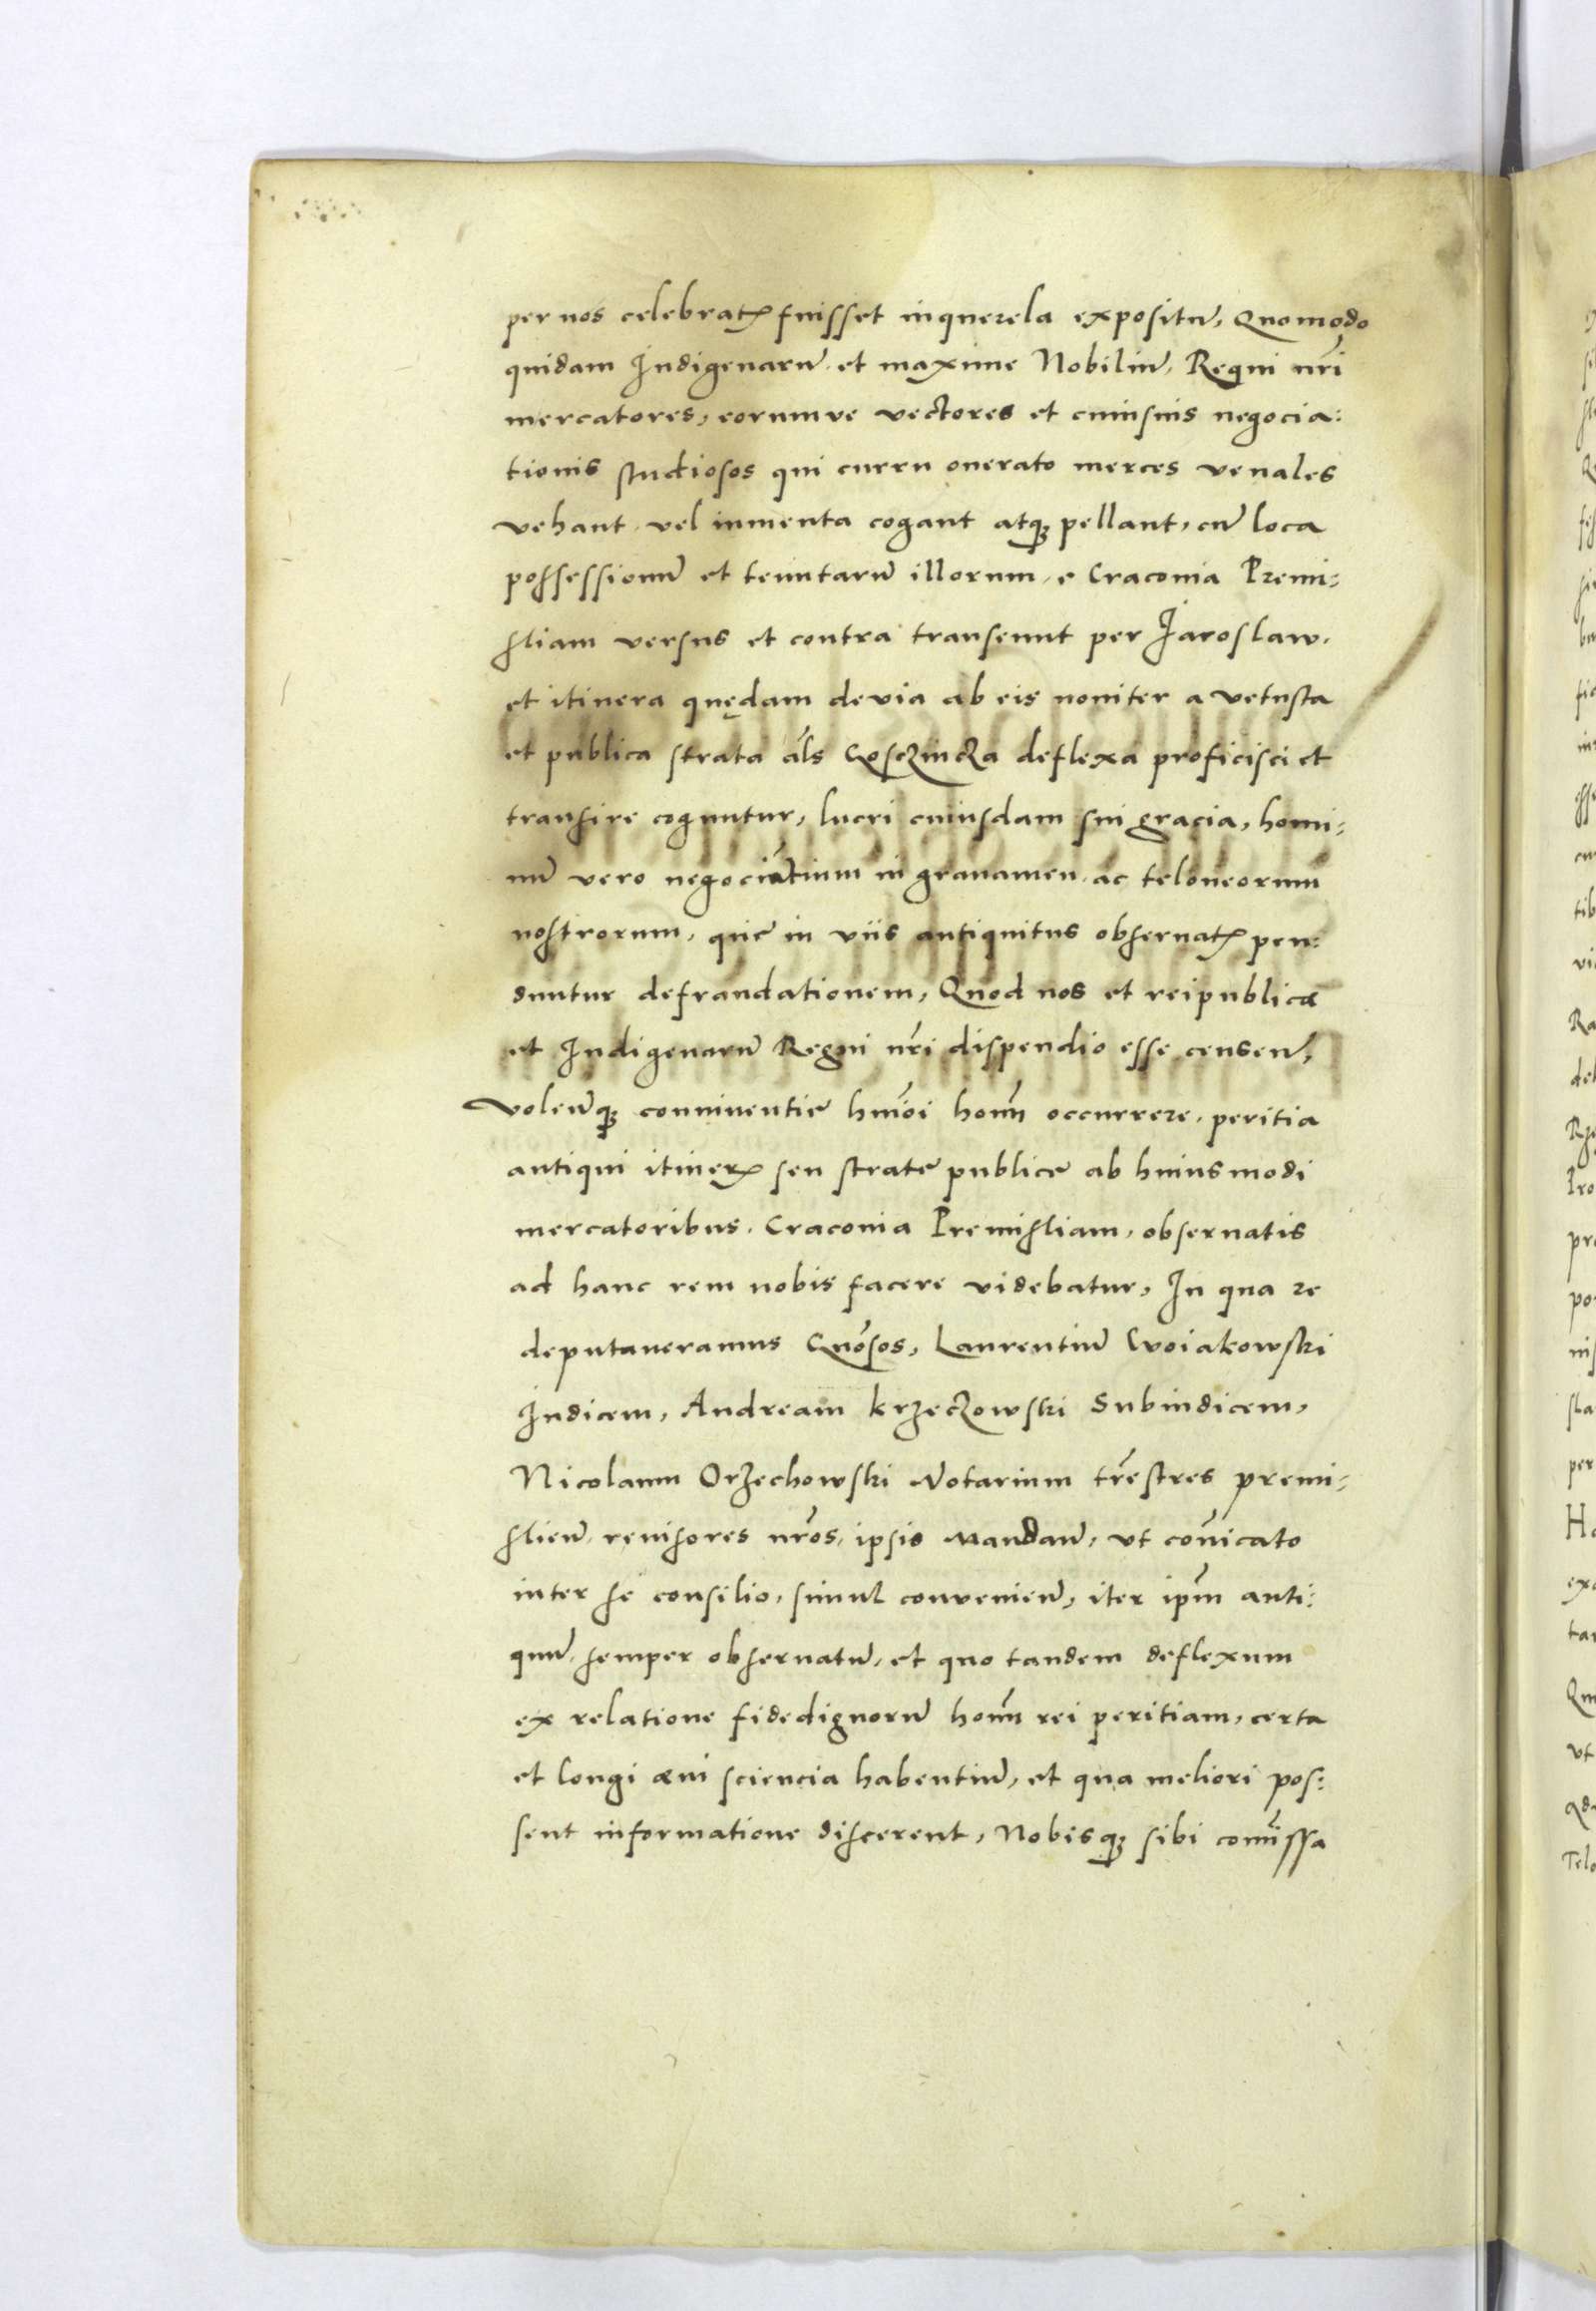 per nos celebratꝝ fuisset in querela expositū, Quomodo
quidam Indigenarū et maxime Nobiliū, Regni nr̄i
mercatores, eorumve vectores et cuiusuis negocia:
tionis studiosos qui curru onerato merces venales
vehant vel iumenta cogant atqꝫ pellant, cū loca
possessionū et tenutarū illorum, e Craconia Premi:
sliam versus et contra transeunt per Jaroslaw.
et itinera quędam devia ab eis noniter a vetusta
et publica strata al̄s Gosczincza deflexa proficisci et
transire coguntur, lucri cuiusdam sui gracia, homi:
nū vero negociantium in grauamen ac teloneorum
nostrorum, quę in viis antiquitus obseruatꝝ pen:
duntur defraudationem, Quod nos et reipublicæ
et Indigenarū Regni nr̄i dispendio esse censen̄,
volen̄qꝫ conniuentię hmōi hom̄ occurrere, peritia
antiqui itinerꝝ seu stratę publicę ab huiusmodi
mercatoribus. Craconia Premisliam, obseruatis
ad hanc rem nobis facere videbatur, In qua re
deputaueramus Gnōsos, Laurentiū Cwoiakowski
Iudicem, Andream Krzeczowski Subiudicem,
Nicolaum Orzechowski Notarium tr̄estres premi:
slien̄ reuisores nr̄os, ipsis mandan̄, vt com̄icato
inter se consilio, simul convenien̄, iter ipm̄ anti:
quū semper obseruatū, et quo tandem deflexum
ex relatione fidedignorū hom̄ rei peritiam, certa
et longi æui sciencia habentiū, et qua meliori pos:
sent informatione discerent, Nobisqꝫ sibi com̄issa